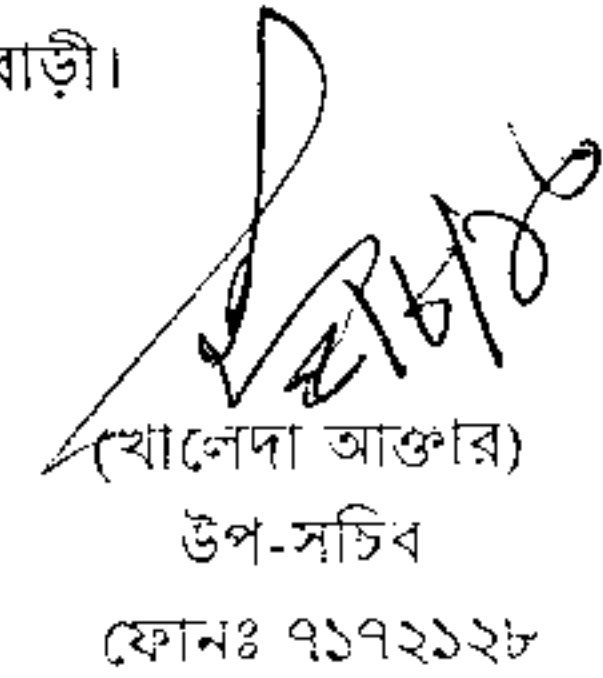 বাড়ী।
(খালেদা আক্তার)
উপ-সচিব
ফোনঃ ৭১৭২১২৮